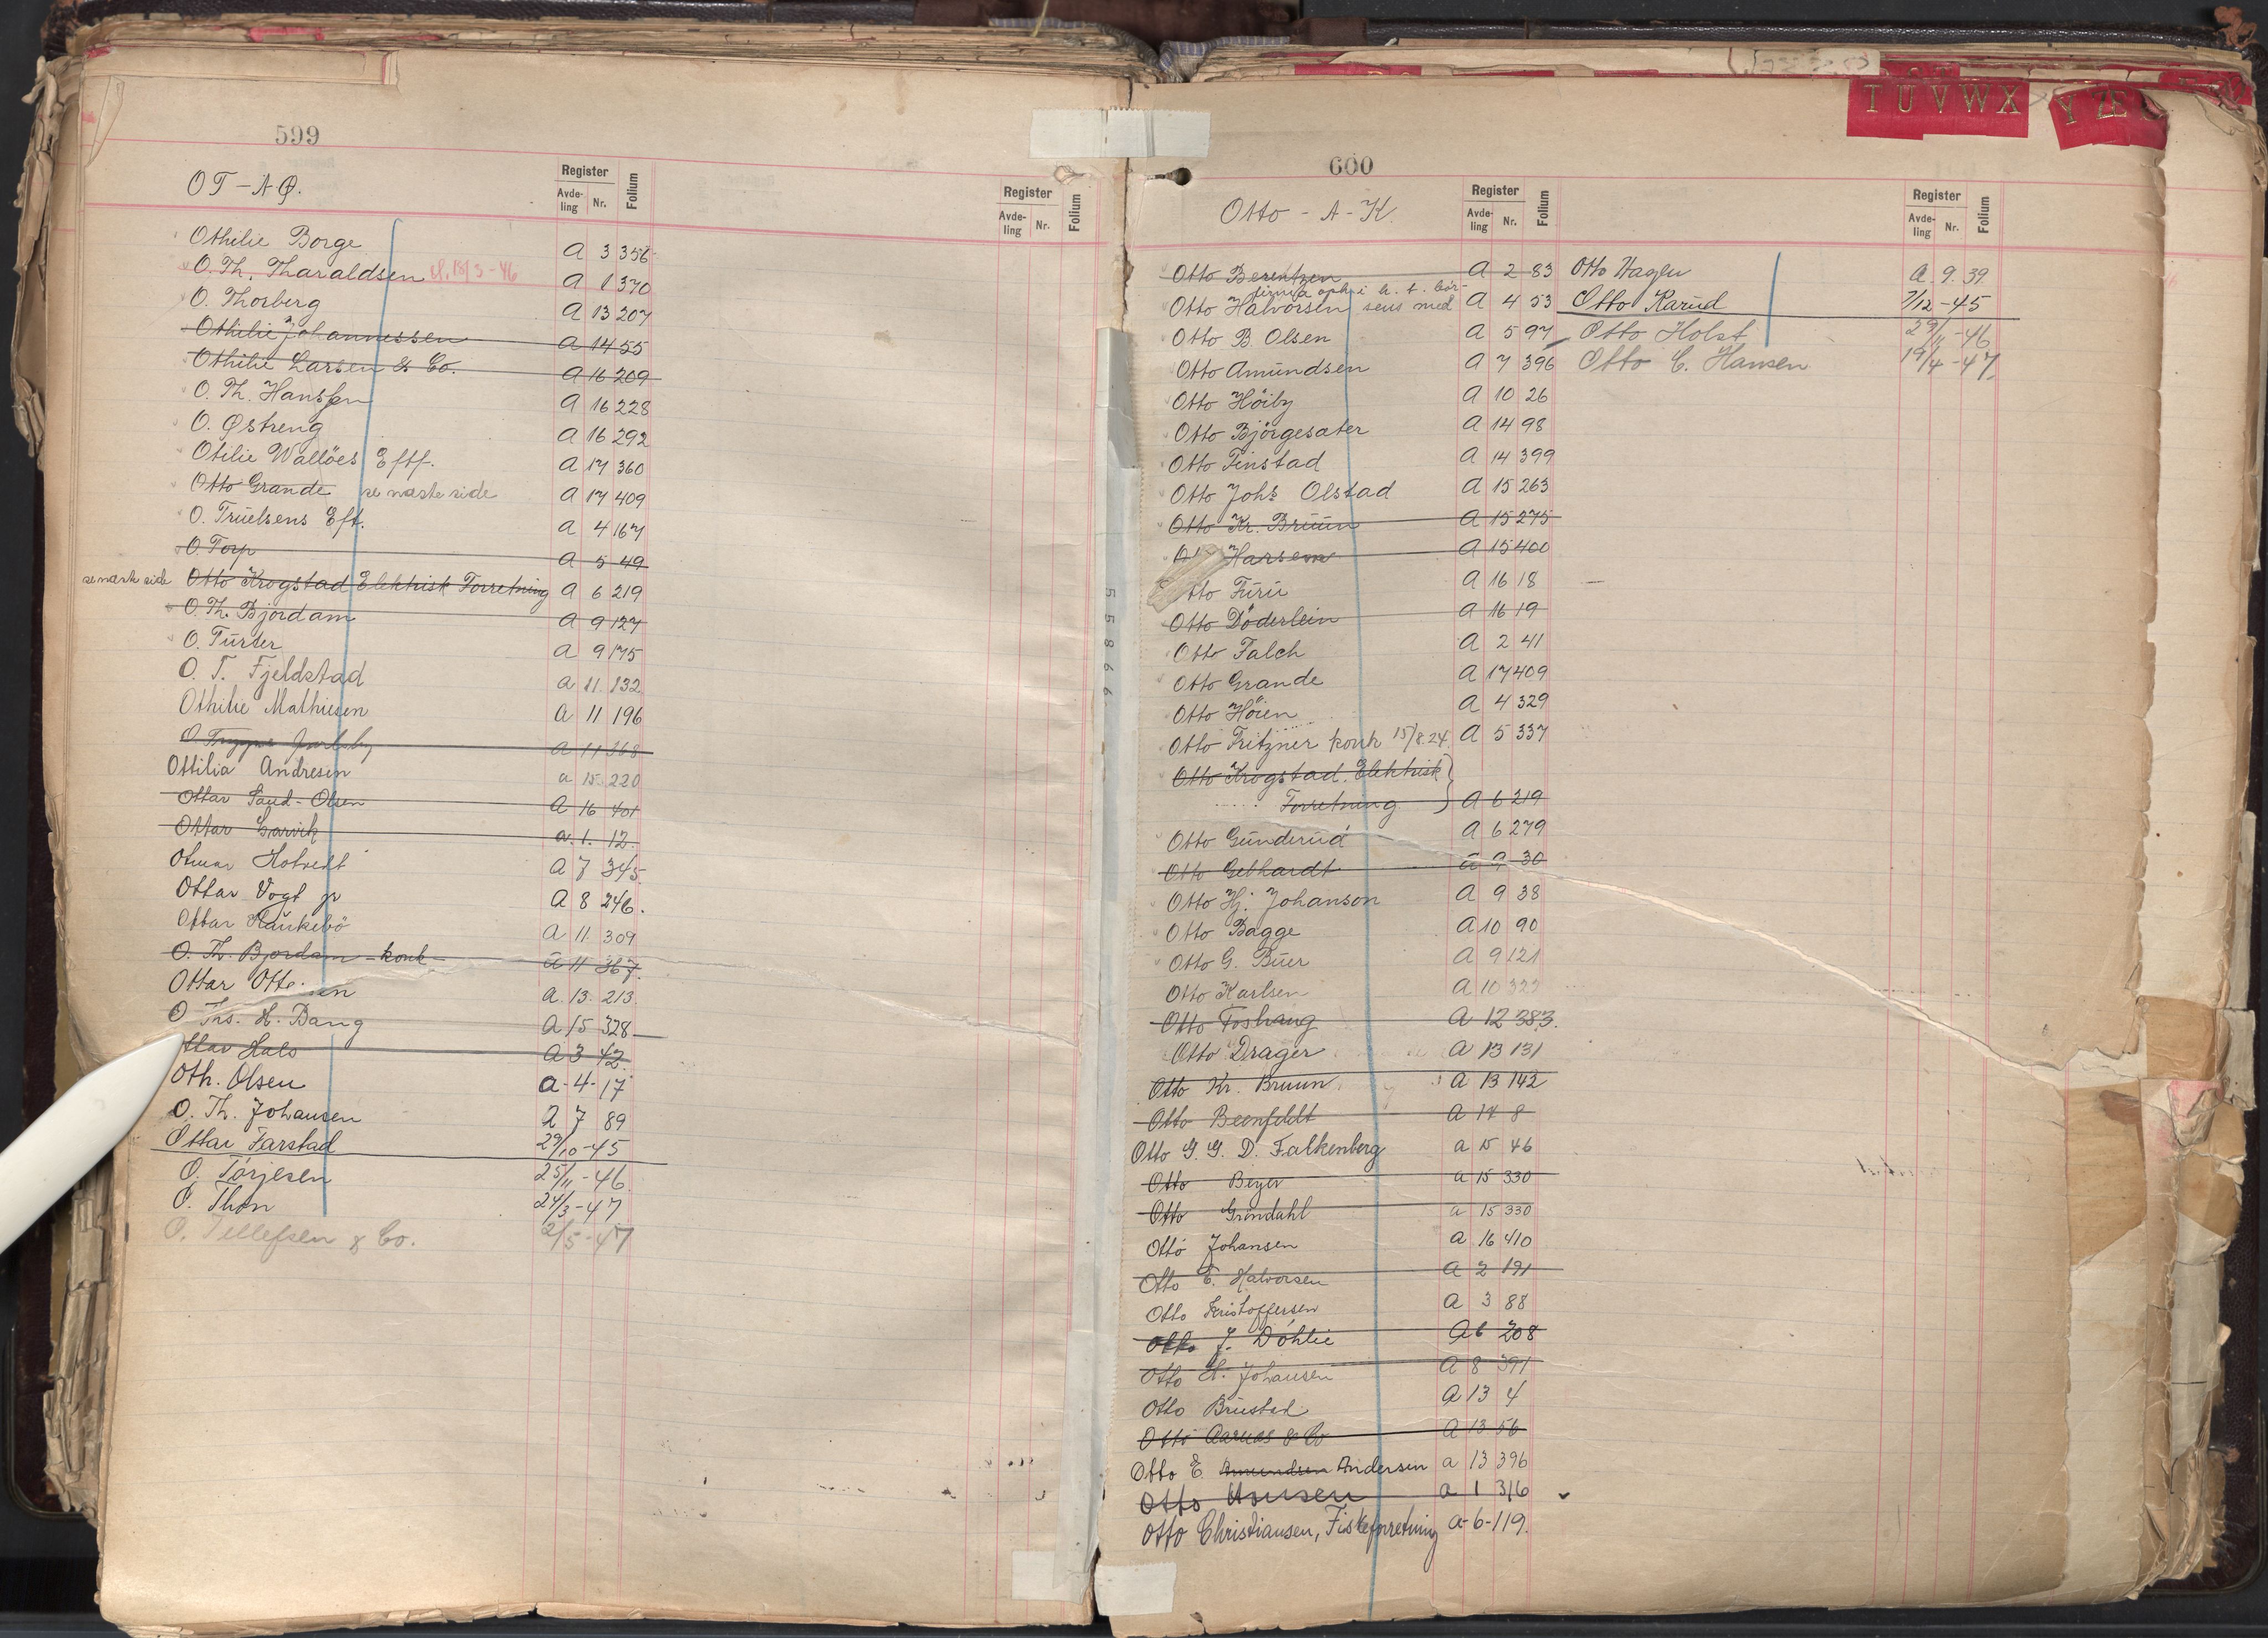 599
OT - A-Ø.
Register
Avde-ling Nr. Folium
Register
Avde-ling Nr. Folium
Othilie Borge A 3 356
O. Th. Tharaldsen sl. 18/3-46 A 1 370
O. Thorberg A 13 207
Othilie Johannessen A 14 55
Othilie Larsen & Co. A 16 209
O. Th. Hanssen A 16 228
O. Østreng A 16 292
Otilie Wallöes Eftf. A 17 360
Otto Grande se næste side A 17 409
O. Truelsens Eft. A 4 167
O. Torp A 5 49
se næste side Otto Krogstad Elektrisk Forretning A 6 219
O. Th. Bjordam A 9 127
O. Turter A 9 175
O. T. Fjeldstad a 11. 132
Othilie Mathiesen a 11 196
O. Trygve a 11 368
Ottilia Andresen a 15. 220
Ottar Sand-Olsen A 16 401
Ottar Larvik a. 1. 12.
Otmar Hotvedt A 7 345.
Ottar Vogt jr A 8 246.
Ottar Haukebö A 11. 309
O. Th. Bjordam - konk - a 11 367.
Ottar Ottesen a. 13. 213.
O Ths. H. Bang A 15 328
Ottar Hals A 3 42.
Oth. Olsen a-4-17
O. Th. Johansen 2 7 89
Ottar Farstad 29/10-45
O. Torjesen 25/11-46
O. Thon 24/3-47
O. Tellefsen & Co. 2/5-47
T U V W X Y Z Æ
600
Otto - A - K.
Register
Avde-ling Nr. Folium
Register
Avde-ling Nr. Folium
Otto Berentzen A 2 83
Otto Halvorsen A 4 53
Otto B Olsen A 5 97
Otto Amundsen A 7 396
Otto Höiby A 10 26
Otto Björgesæter A 14 98
Otto Finstad A 14 399
Otto Johs Olstad A 15 263
Otto Kr. Bruun A 15 275
Harsem A 15 400
Otto Furu A 16 18
Otto Döderlein A 16 19
Otto Falch A 2 41
Otto Grande A 17 409
Otto Höien A 4 329
Otto Fritzner konk 15/8.24. A 5 337
Otto Krogstad. Elektrisk
Forretning A 6 219
Otto Gunderud A 6 279
Otto Gebhardt a 9 30
Otto Hj. Johanson A 9 38
Otto Bagge A 10 90
Otto G. Buer A 9 121
Otto Karlsen A 10 322
Otto Foshaug A 12 383.
Otto Drager A 13 131
Otto Kr. Bruun A 13 142
Otto Beenfeldt A 14 8
Otto G. G. D. Falkenberg a 15 46
Otto Beyer a 15 330
Otto Gröndahl a 15 330
Otto Johansen a 16 410
Otto E. Halvorsen a 2 191
Otto Kristoffersen a 3 88
Otto J. Döhlie A 6 208
Otto H. Johansen A 8 391
Otto Brustad A 13 4
Otto Aarnæs & Co A 13 56
Otto E. Amundsen Andersen a 13 396
Otto Hansen a 1 316
Otto Christiansen, Fiskeforretning a-6-119.
Otto Hagen a. 9. 39
Otto Karud 7/12-45
Otto Holst 29/11-46
Otto C. Hansen 19/4-47